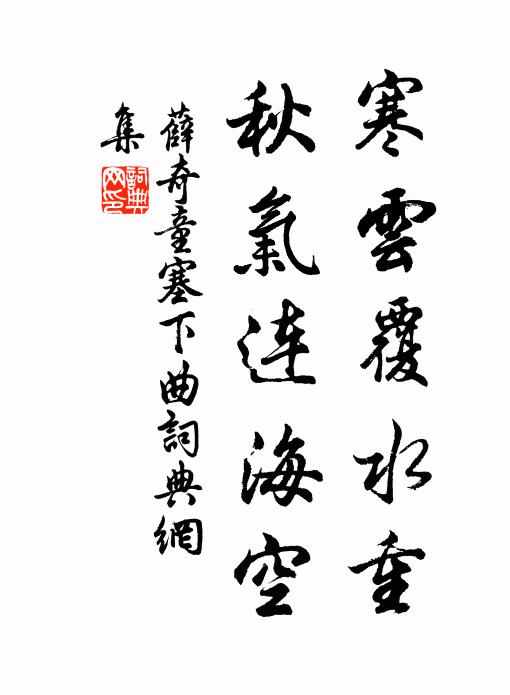 寒雲覆水重
秋氣連海空
薛奇童塞下曲詞典網
集
詞典
网印